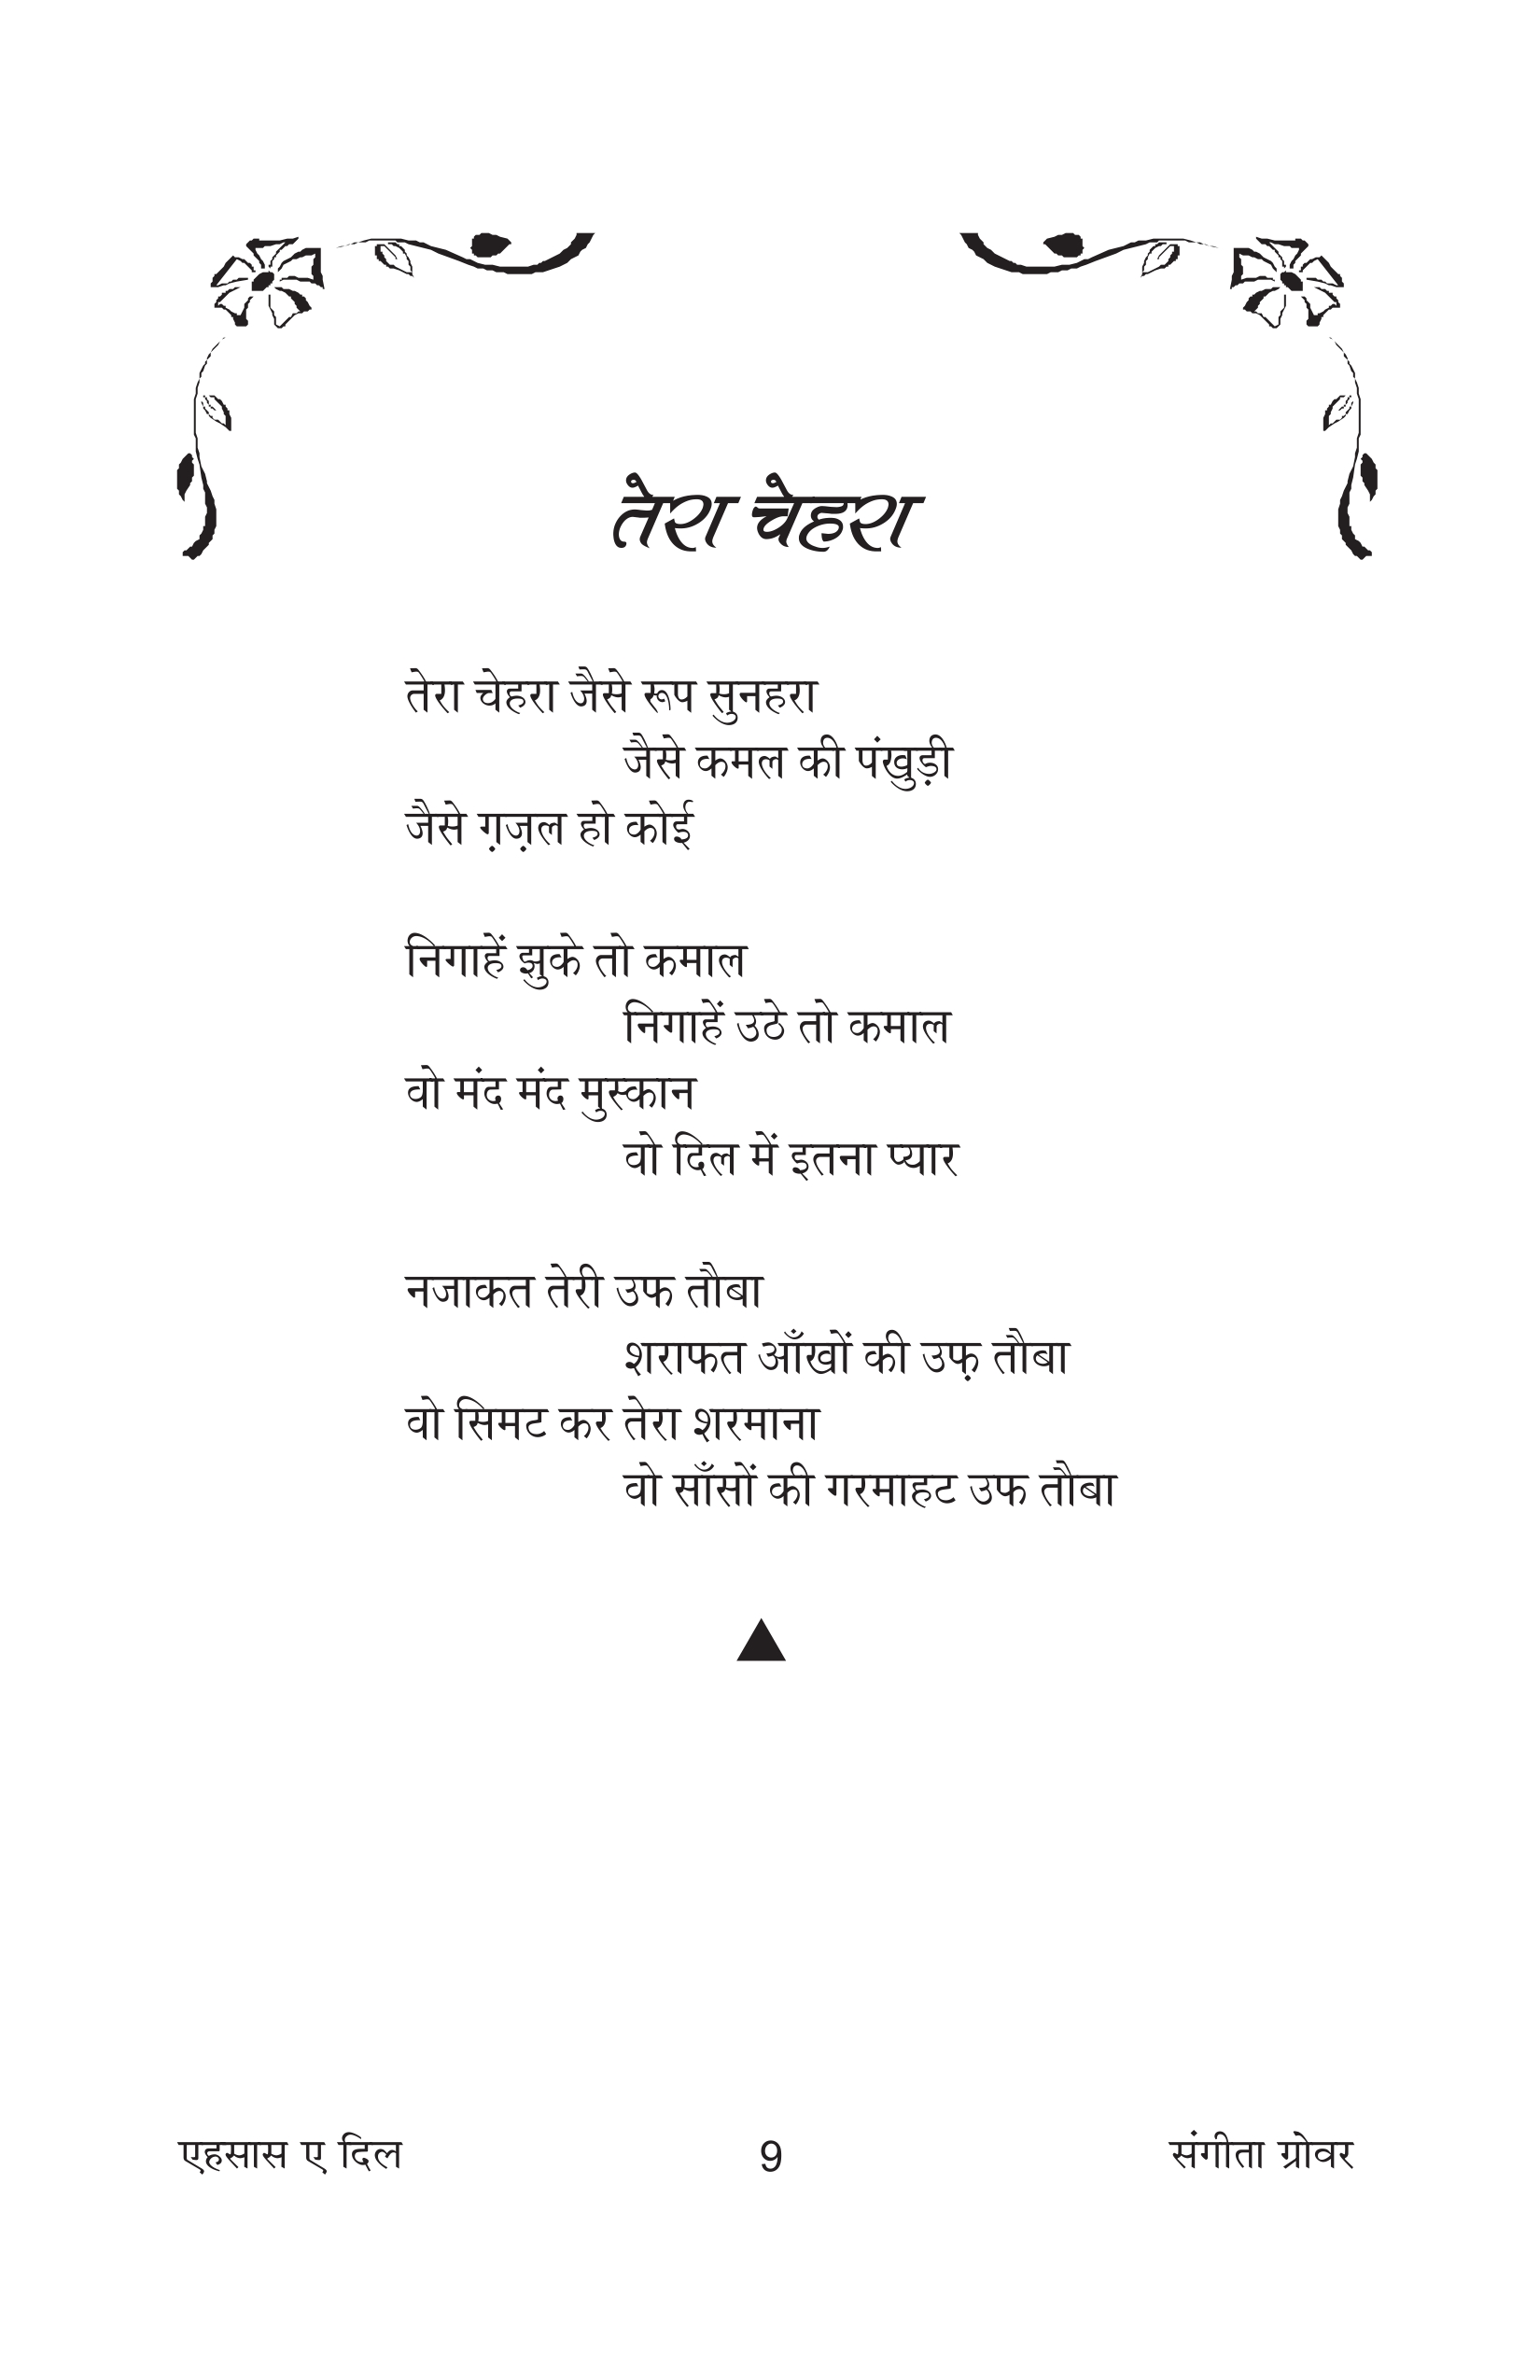 तेरा चेहरा
तेरा चेहरा जैसे रूप सुनहरा
जैसे कमल की पंखुड़ी
जैसे ग़ज़ल हो कोई
निगाहें झुके तो कमाल
निगाहें उठे तो कमाल
वो मंद मंद मुस्कान
वो दिल में इतना प्यार
नजाकत तेरी उफ तौबा
शराफत आँखों की उफ़ तौबा
वो सिमट कर तेरा शरमाना
वो साँसों की गरमाहट उफ तौबा
एहसास ए दिल 9 संगीता ग्रोवर